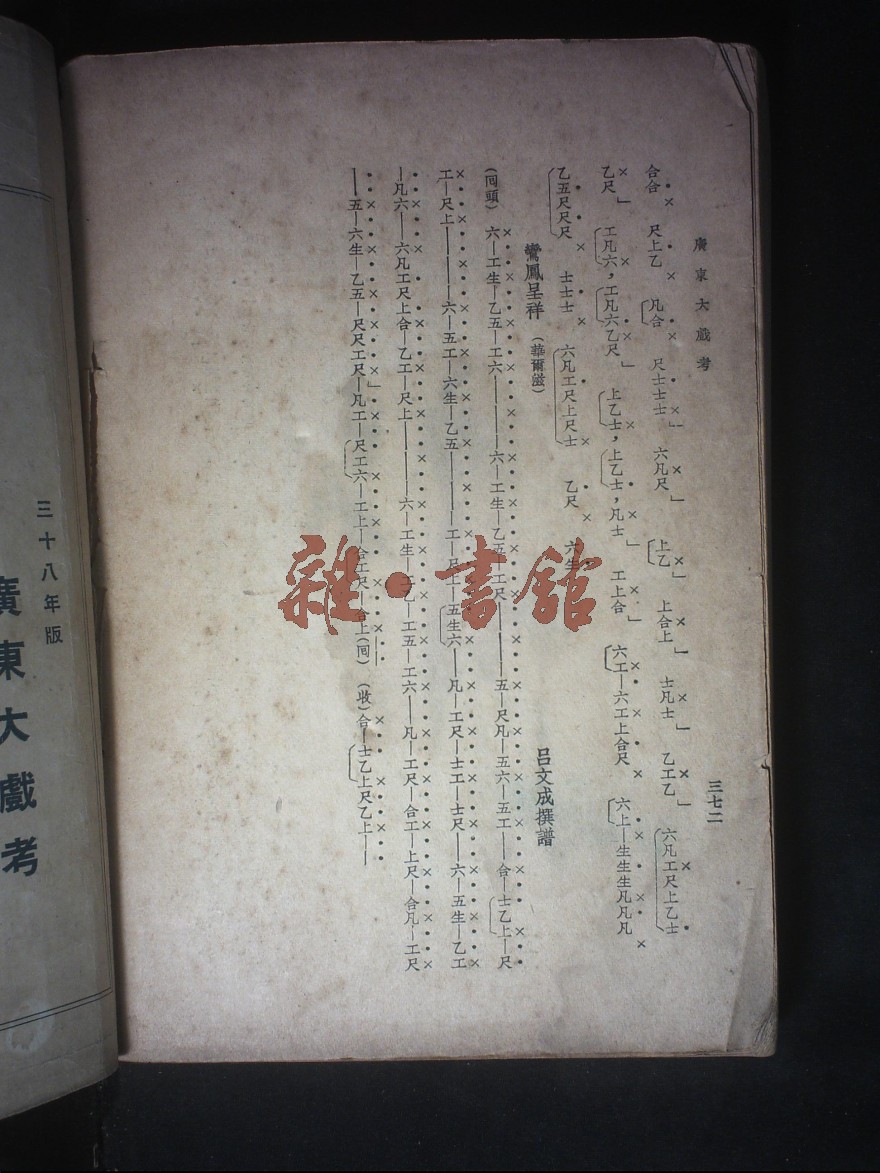 廣東大戲考
三七二
合合 尺上乙 凡合 尺士士士」 六凡尺」 上乙」 上合上」 士凡士」 乙工乙」 六凡工尺上乙士
乙尺」 工凡六，工凡六乙尺」 上乙士，上乙士，凡士」 工上合」 六工—六工上合尺 六上—生生生凡凡凡
乙五尺尺尺 士士士 六凡工尺上尺士 乙尺 六生
鸞鳳呈祥 （華爾滋） 呂文成撰譜
（囘頭） 六—工生—乙五—工六————六—工生—乙五—工尺————五—尺凡—五六—五工——合—士乙上—尺
工—尺上————六—五工—六生—乙五————工—尺上—五生六——凡—工尺—士工—士尺——六—五生—乙工
—凡六——六凡工尺上合—乙工—尺上————六—工生—工乙—工五—工六——凡—工尺—合工—上尺—合凡—工尺
——五—六生—乙五—尺尺工尺—凡工—尺工六—工上—合工尺 合上（囘） （收）合—士乙上尺乙上——
三十八年版
廣東大戲考
雜·書館